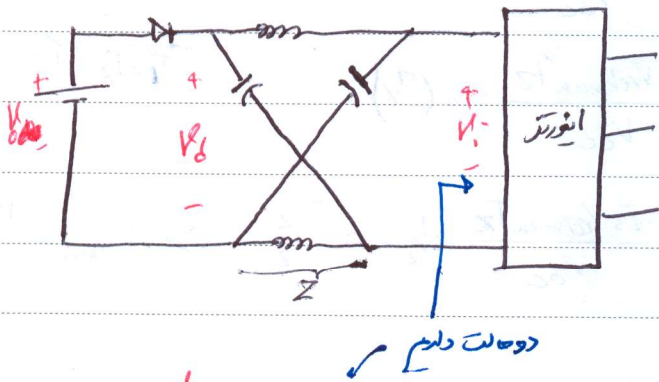 + V₀ + V_d - + V_i - اینورتر
Z
دو حالت داریم